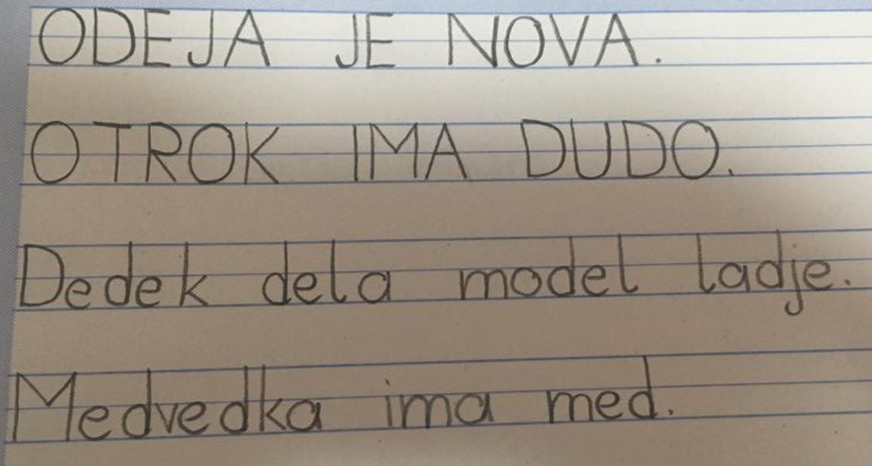 ODEJA JE NOVA.
OTROK IMA DUDO.
Dedek dela model ladje.
Medvedka ima med.